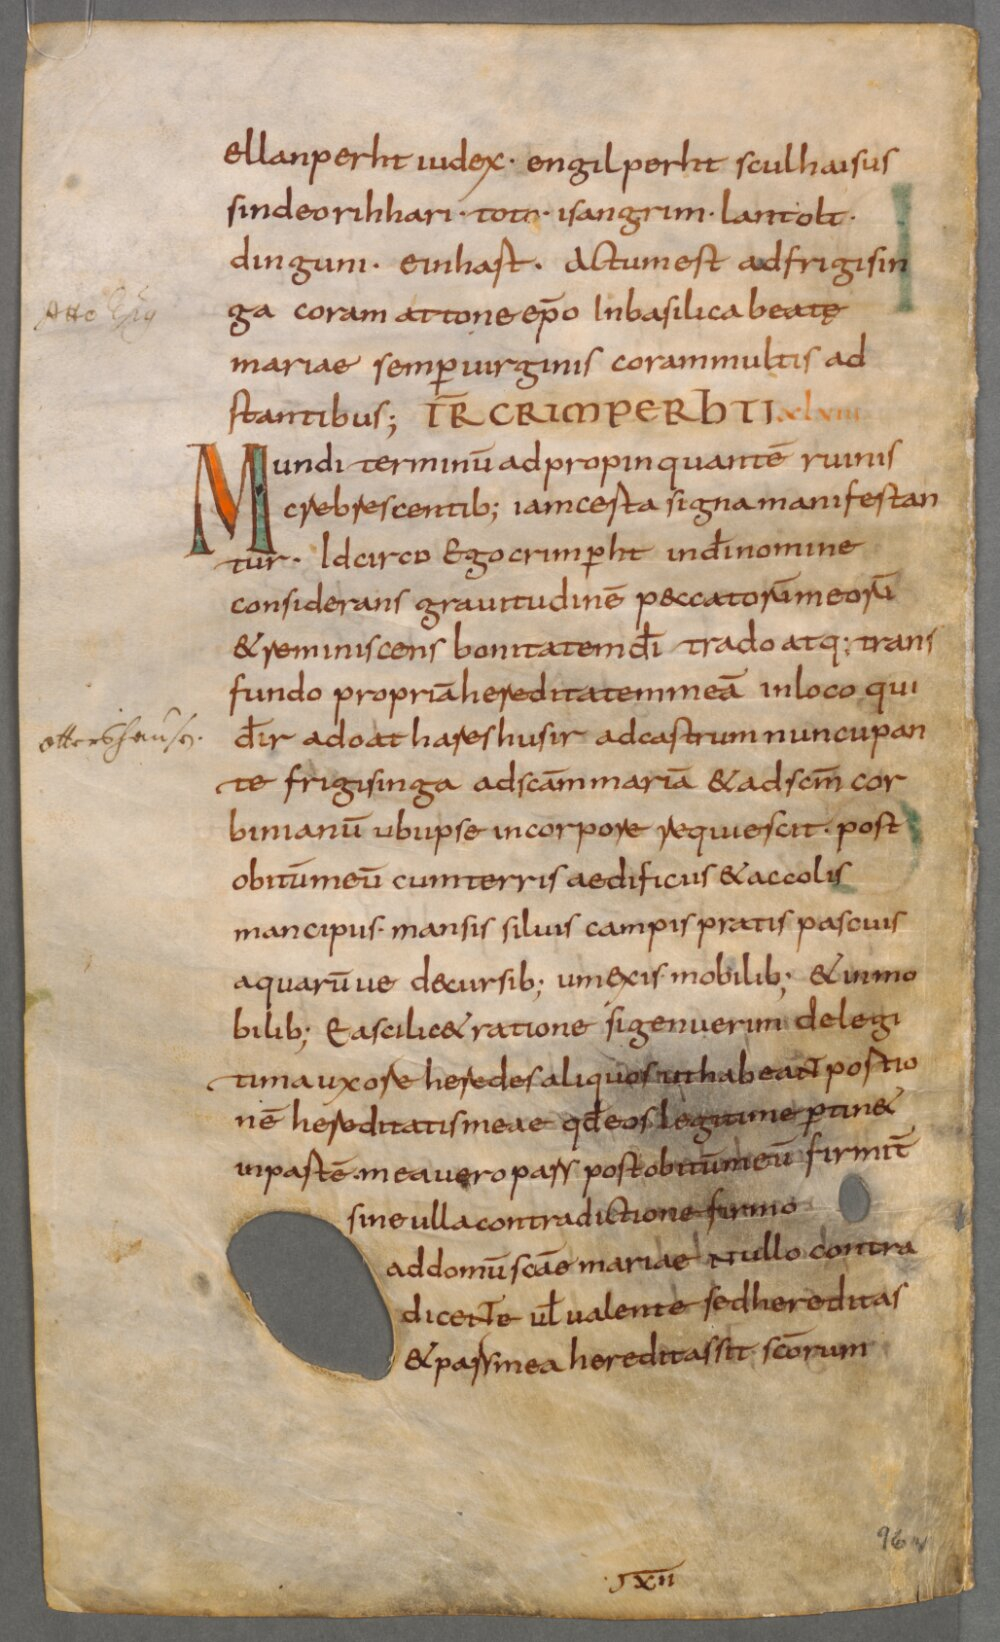 ellanperht iudex· engilperht sculhaisus
sindeo rihhari· toto· isangrim· lantolt·
dinguni· einhast· Actum est ad frigisin
ga coram attone ep̄o In basilica beatę
Atto Ep̄s
mariae semp̱ uirginis coram multis ad
stantibus; TR̄ CRIMPERhTI xlviii
Mundi terminū adpropinquantē ruinis
crebrescentib; iam certa signa manifestan
tur· Idcirco Ego crimp̱ht in dī nomine
considerans grauitudinē peccatorū meorū
& reminiscens bonitatem dī trado atq; trans
fundo propriā hereditatem meā in loco qui
dr̄ ad oathareshusir ad castrum nuncupan
ottershausen.
te frigisinga ad scām mariā & ad scm̄ cor
binianū ubi ipse in corpore requiescit· post
obitū meū cum terris aedificiis & accolis
mancipiis· mansis siluis campis pratis pascuis
aquarūue decursib; uinexis· mobilib; & inmo
bilib; Ea scilic& ratione si genuerim de legi
tima uxore heredes aliquos ut habeant portio
nē hereditatis meae qđ eos legitime p̱tin&
in partē· mea uero pars post obitū meū firmit̄
sine ulla contradictione firmo
ad domū scāe mariae Nullo contra
dicente ul̄ ualente sed hereditas
& pars mea hereditas sit scōrum
96v
xii